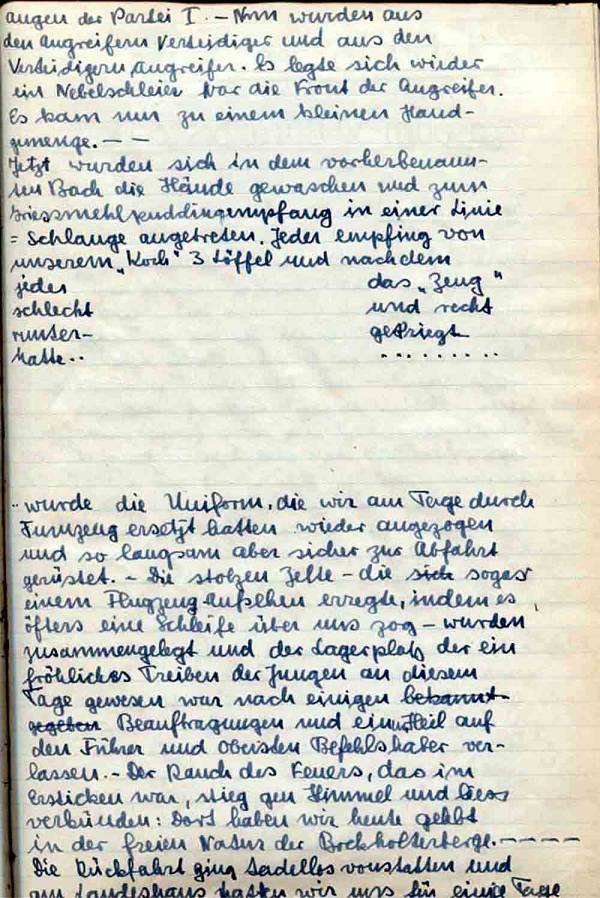 augen der Partei I. – Nun wurden aus
den Angreifern Verteidiger und aus den
Verteidigern Angreifer. Es legte sich wieder
ein Nebelschleier vor die Front der Angreifer.
Es kam nun zu einem kleinen Hand-
gemenge. – –
Jetzt wurden sich in dem vorherbenann-
ten Bach die Hände gewaschen und zum
Griessmehlpuddingempfang in einer Linie
= Schlange angetreten. Jeder empfing von
unserem „Koch“ 3 Löffel und nachdem
jeder das „Zeug“
schlecht und recht
runter- gekriegt
hatte.. ........
..wurde die Uniform, die wir am Tage durch
Turnzeug ersetzt hatten wieder angezogen
und so langsam aber sicher zur Abfahrt
gerüstet. – Die stolzen Zelte – die sich sogar
einem Flugzeug Aufsehen erregte, indem es
öfters eine Schleife über uns zog – wurden
zusammengelegt und der Lagerplatz der ein
fröhliches Treiben der Jungen an diesem
Tage gewesen war nach einigen bekannt-
gegeben Beauftragungen und einem Heil auf
den Führer und Obersten Befehlshaber ver-
lassen. – Der Rauch des Feuers, das im
Ersticken war, stieg gen Himmel und liess
verkünden: Dort haben wir heute gelebt
in der freien Natur der Bockholterberge. – – – – –
Die Rückfahrt ging tadellos vonstatten und
am Landeshaus hatten wir uns für einige Tage